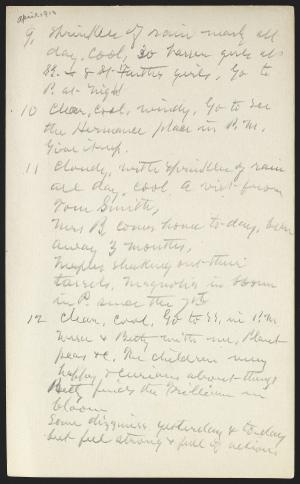 April 1913
9, Sprinkles of rain nearly all
day, cool, 30 Vassar girls at
SS. & St. girls, Go to
P. at night
10 Clear, cool, windy, Go to see
the Hermance place in P.M.
Give it up.
11 Cloudy, with sprinkles of rain
all day, cool. A visit from
Tom Smith,
Mrs B. comes home to-day, been
away 3 months,
Maples shaking out their
tassels, Magnolias in bloom
in P. since the 7th
12 Clear, cool, Go to SS, in P.M.
& Betty with me, Plant
peas &c. The children very
happy & curious about things
Betty finds the Trillium in
bloom
Some dizziness yesterday & to-day
but feel strong & full of action.